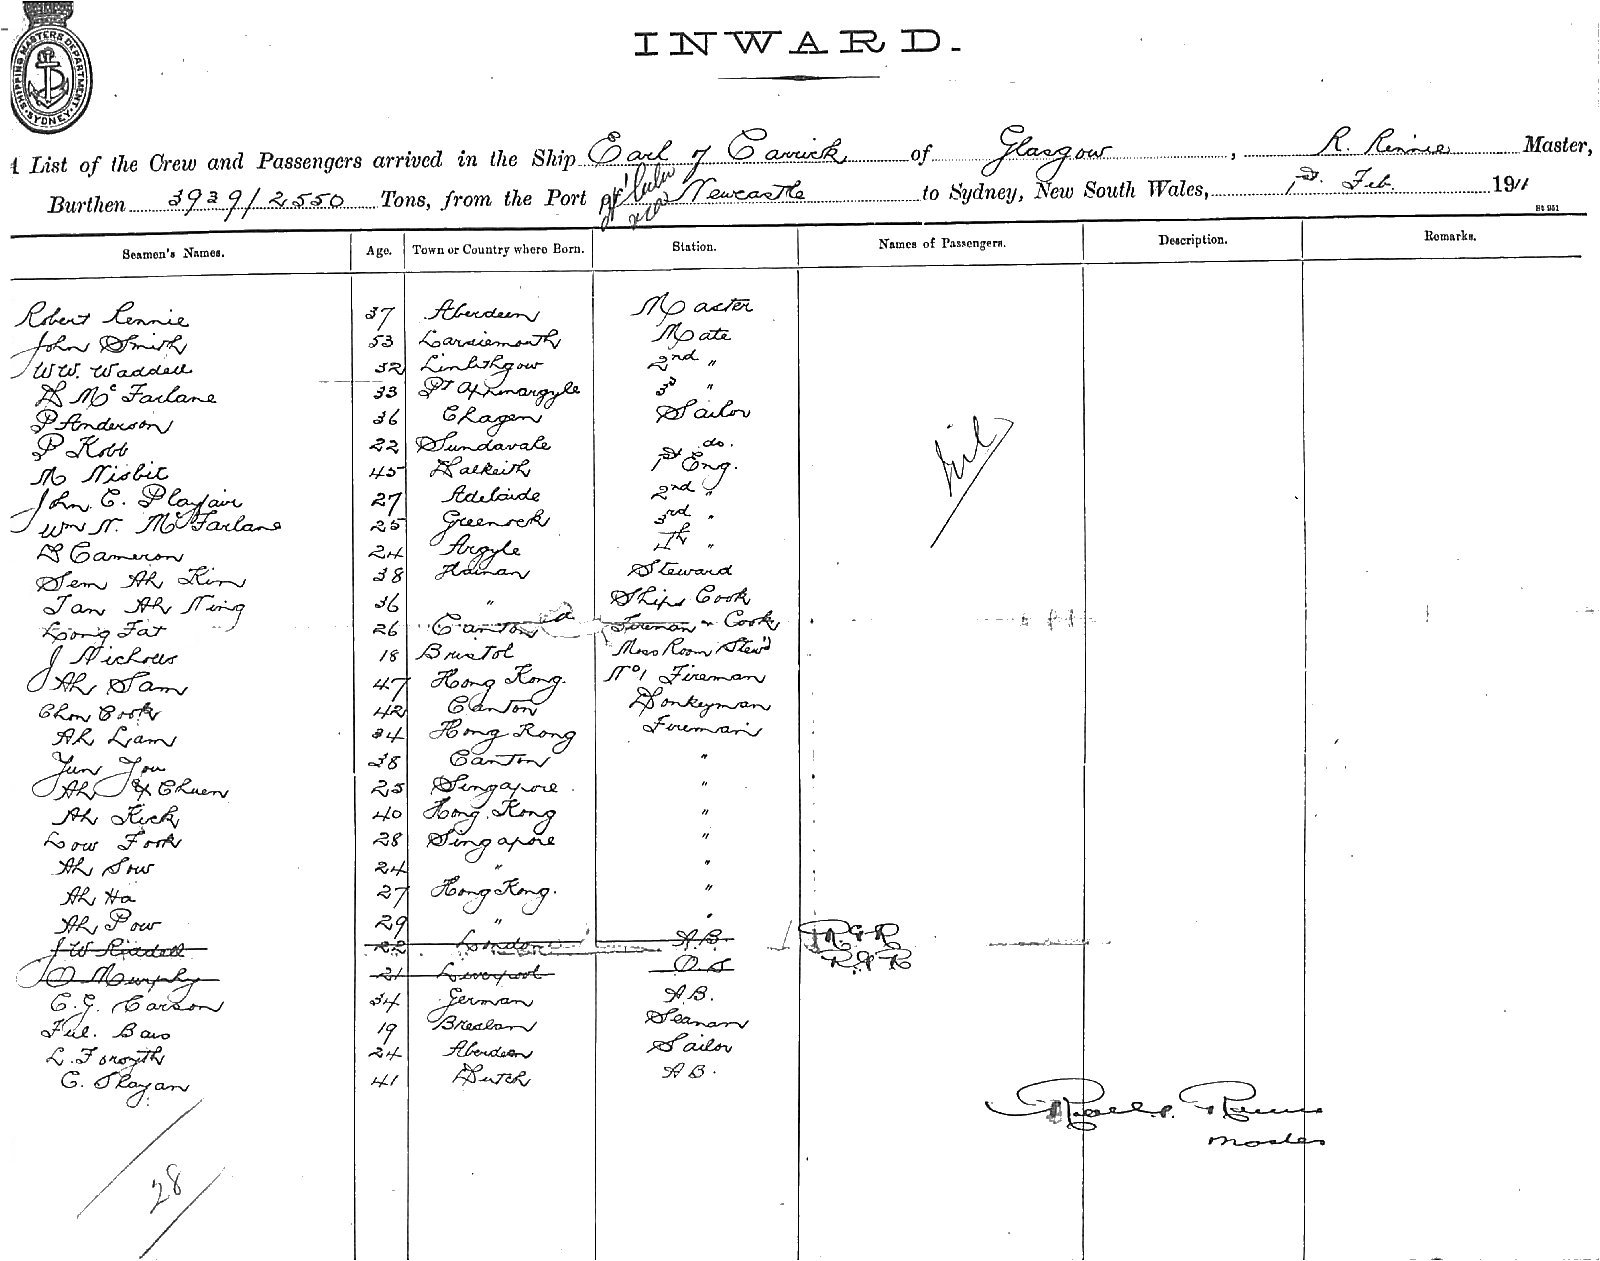 SHIPPING MASTERS DEPARTMENT. SYDNEY.
INWARD.
A List of the Crew and Passengers arrived in the Ship Earl of Carrick of Glasgow, R. Rennie Master,
Burthen 3939/2550 Tons, from the Port of Newcastle to Sydney, New South Wales, 1st Feb 1911
St 951
Seamen's Names. Age. Town or Country where Born. Station. Names of Passengers. Description. Remarks.
Robert Rennie 37 Aberdeen Master
John Smith 53 Lossiemouth Mate
W.W. Waddell 32 Linlithgow 2nd "
D McFarlane 33 3rd "
P Anderson 36 Sailor
P Kobb 22 Sundavale do.
M Nisbit 45 Dalkeith 1st Eng.
John C. Playfair 27 Adelaide 2nd "
Wm N. McFarlane 25 Greenock 3rd "
D Cameron 24 Argyle 4th "
Sem Ah Kim 38 Hainan Steward
Tan Ah Ning 36 " Ships Cook
Long Fat 26 Canton Fireman Cook
J Nicholls 18 Bristol Mess Room Stew'd
Ah Sam 47 Hong Kong. No 1 Fireman
Chon Cook 42 Canton Donkeyman
Ah Liam 34 Hong Kong Fireman
Yun You 38 Canton "
Ah Chuen 25 Singapore "
Ah Kick 40 Hong Kong "
Low Fook 28 Singapore "
Ah Sow 24 " "
Ah Ha 27 Hong Kong. "
Ah Pow 29 " "
J W Riddell 22 London A.B. R G R
O Murphy 21 Liverpool O.S R G R
C.G. Carson 34 German A.B.
Ful. Baus 19 Breslau Seaman
L. Forsyth 24 Aberdeen Sailor
C. 41 Dutch A B.
nil
Master
28